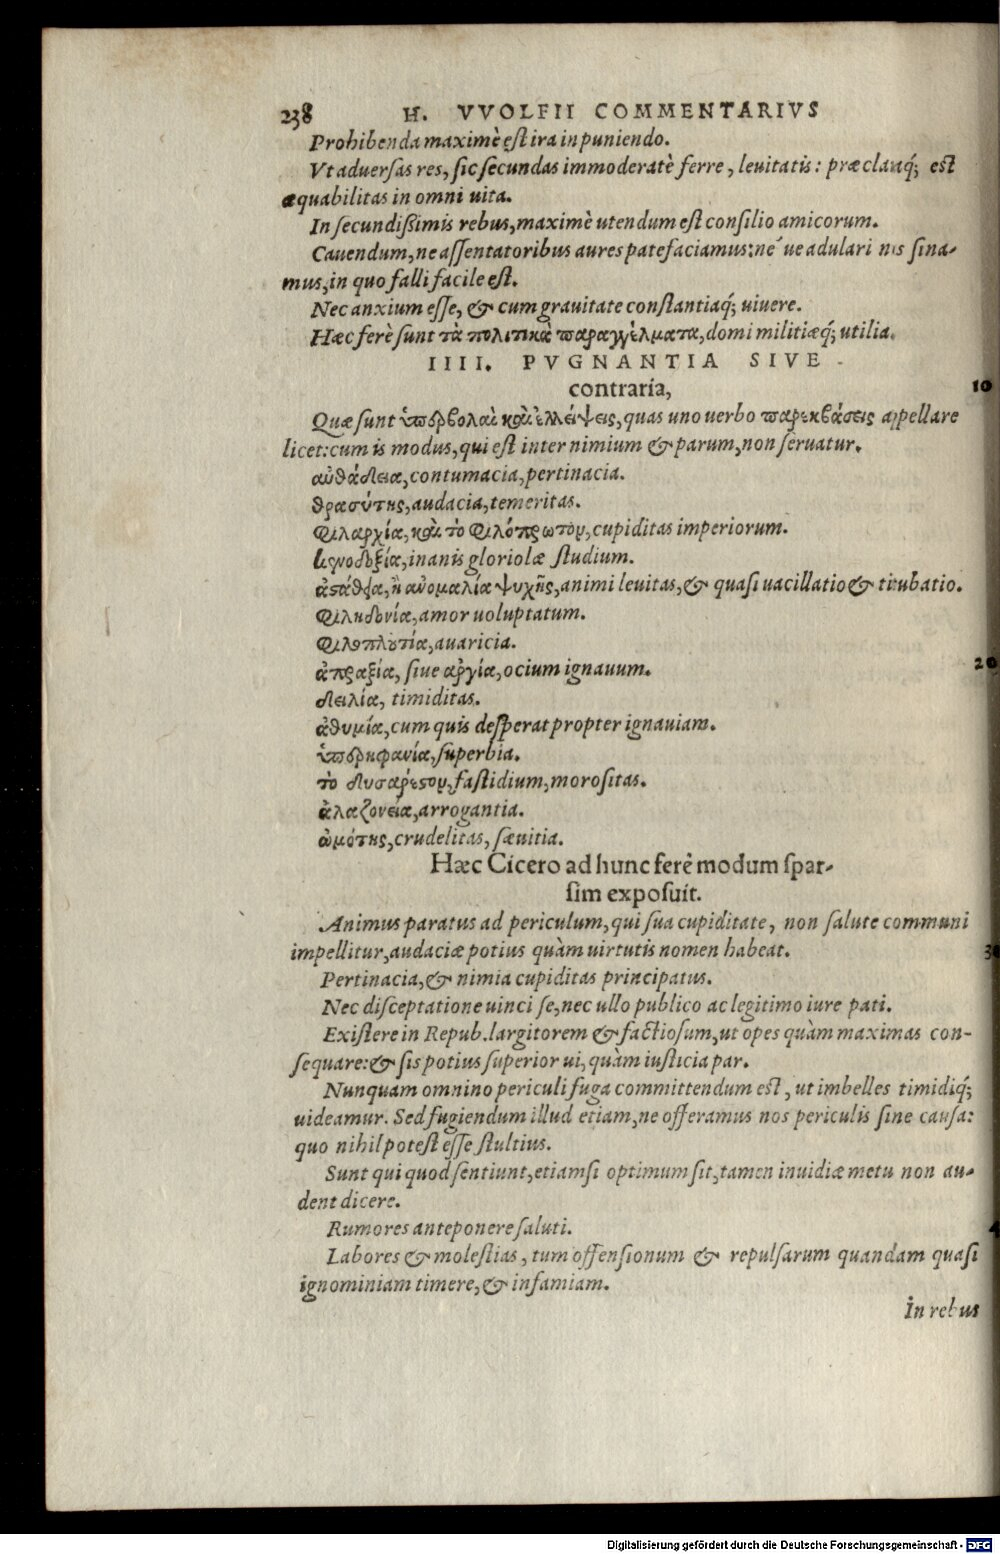 238 H. VVOLFII COMMENTARIVS
Prohibenda maximè est ira in puniendo.
Vt aduersas res, sic secundas immoderatè ferre, leuitatis: præclaraq́; est
æquabilitas in omni uita.
In secundißimis rebus, maximè utendum est consilio amicorum.
Cauendum, ne assentatoribus aures patefaciamus: né ue adulari nos sina-
mus, in quo falli facile est.
Nec anxium esse, & cum grauitate constantiaq́; uiuere.
Hæc ferè sunt τὰ πολιτικὰ παραγγέλματα, domi militiæq́; utilia.
IIII. PVGNANTIA SIVE
contraria, 10
Quæ sunt ὑπερβολαὶ καὶ ἐλλείψεις, quas uno uerbo παρεκβάσεις appellare
licet: cum is modus, qui est inter nimium & parum, non seruatur.
αὐθάδεια, contumacia, pertinacia.
θρασύτης, audacia, temeritas.
φιλαρχία, καὶ τὸ φιλόπρωτον, cupiditas imperiorum.
κενοδοξία, inanis gloriolæ studium.
ἀστάθεια, ἢ ἀνομαλία ψυχῆς, animi leuitas, & quasi uacillatio & titubatio.
φιληδονία, amor uoluptatum.
φιλοπλουτία, auaricia.
ἀπραξία, siue ἀργία, ocium ignauum. 20
δειλία, timiditas.
ἀθυμία, cum quis desperat propter ignauiam.
ὑπερηφανία, superbia.
τὸ δυσάρεστον, fastidium, morositas.
ἀλαζονεία, arrogantia.
ὠμότης, crudelitas, sæuitia.
Hæc Cicero ad hunc ferè modum spar-
sim exposuit.
Animus paratus ad periculum, qui sua cupiditate, non salute communi
impellitur, audaciæ potius quàm uirtutis nomen habeat. 30
Pertinacia, & nimia cupiditas principatus.
Nec disceptatione uinci se, nec ullo publico ac legitimo iure pati.
Existere in Repub. largitorem & factiosum, ut opes quàm maximas con-
sequare: & sis potius superior ui, quàm iusticia par.
Nunquam omnino periculi fuga committendum est, ut imbelles timidiq́;
uideamur. Sed fugiendum illud etiam, ne offeramus nos periculis sine causa:
quo nihil potest esse stultius.
Sunt qui quod sentiunt, etiamsi optimum sit, tamen inuidiæ metu non au-
dent dicere.
Rumores anteponere saluti.
Labores & molestias, tum offensionum & repulsarum quandam quasi
ignominiam timere, & infamiam.
In rebus
Digitalisierung gefördert durch die Deutsche Forschungsgemeinschaft - DFG